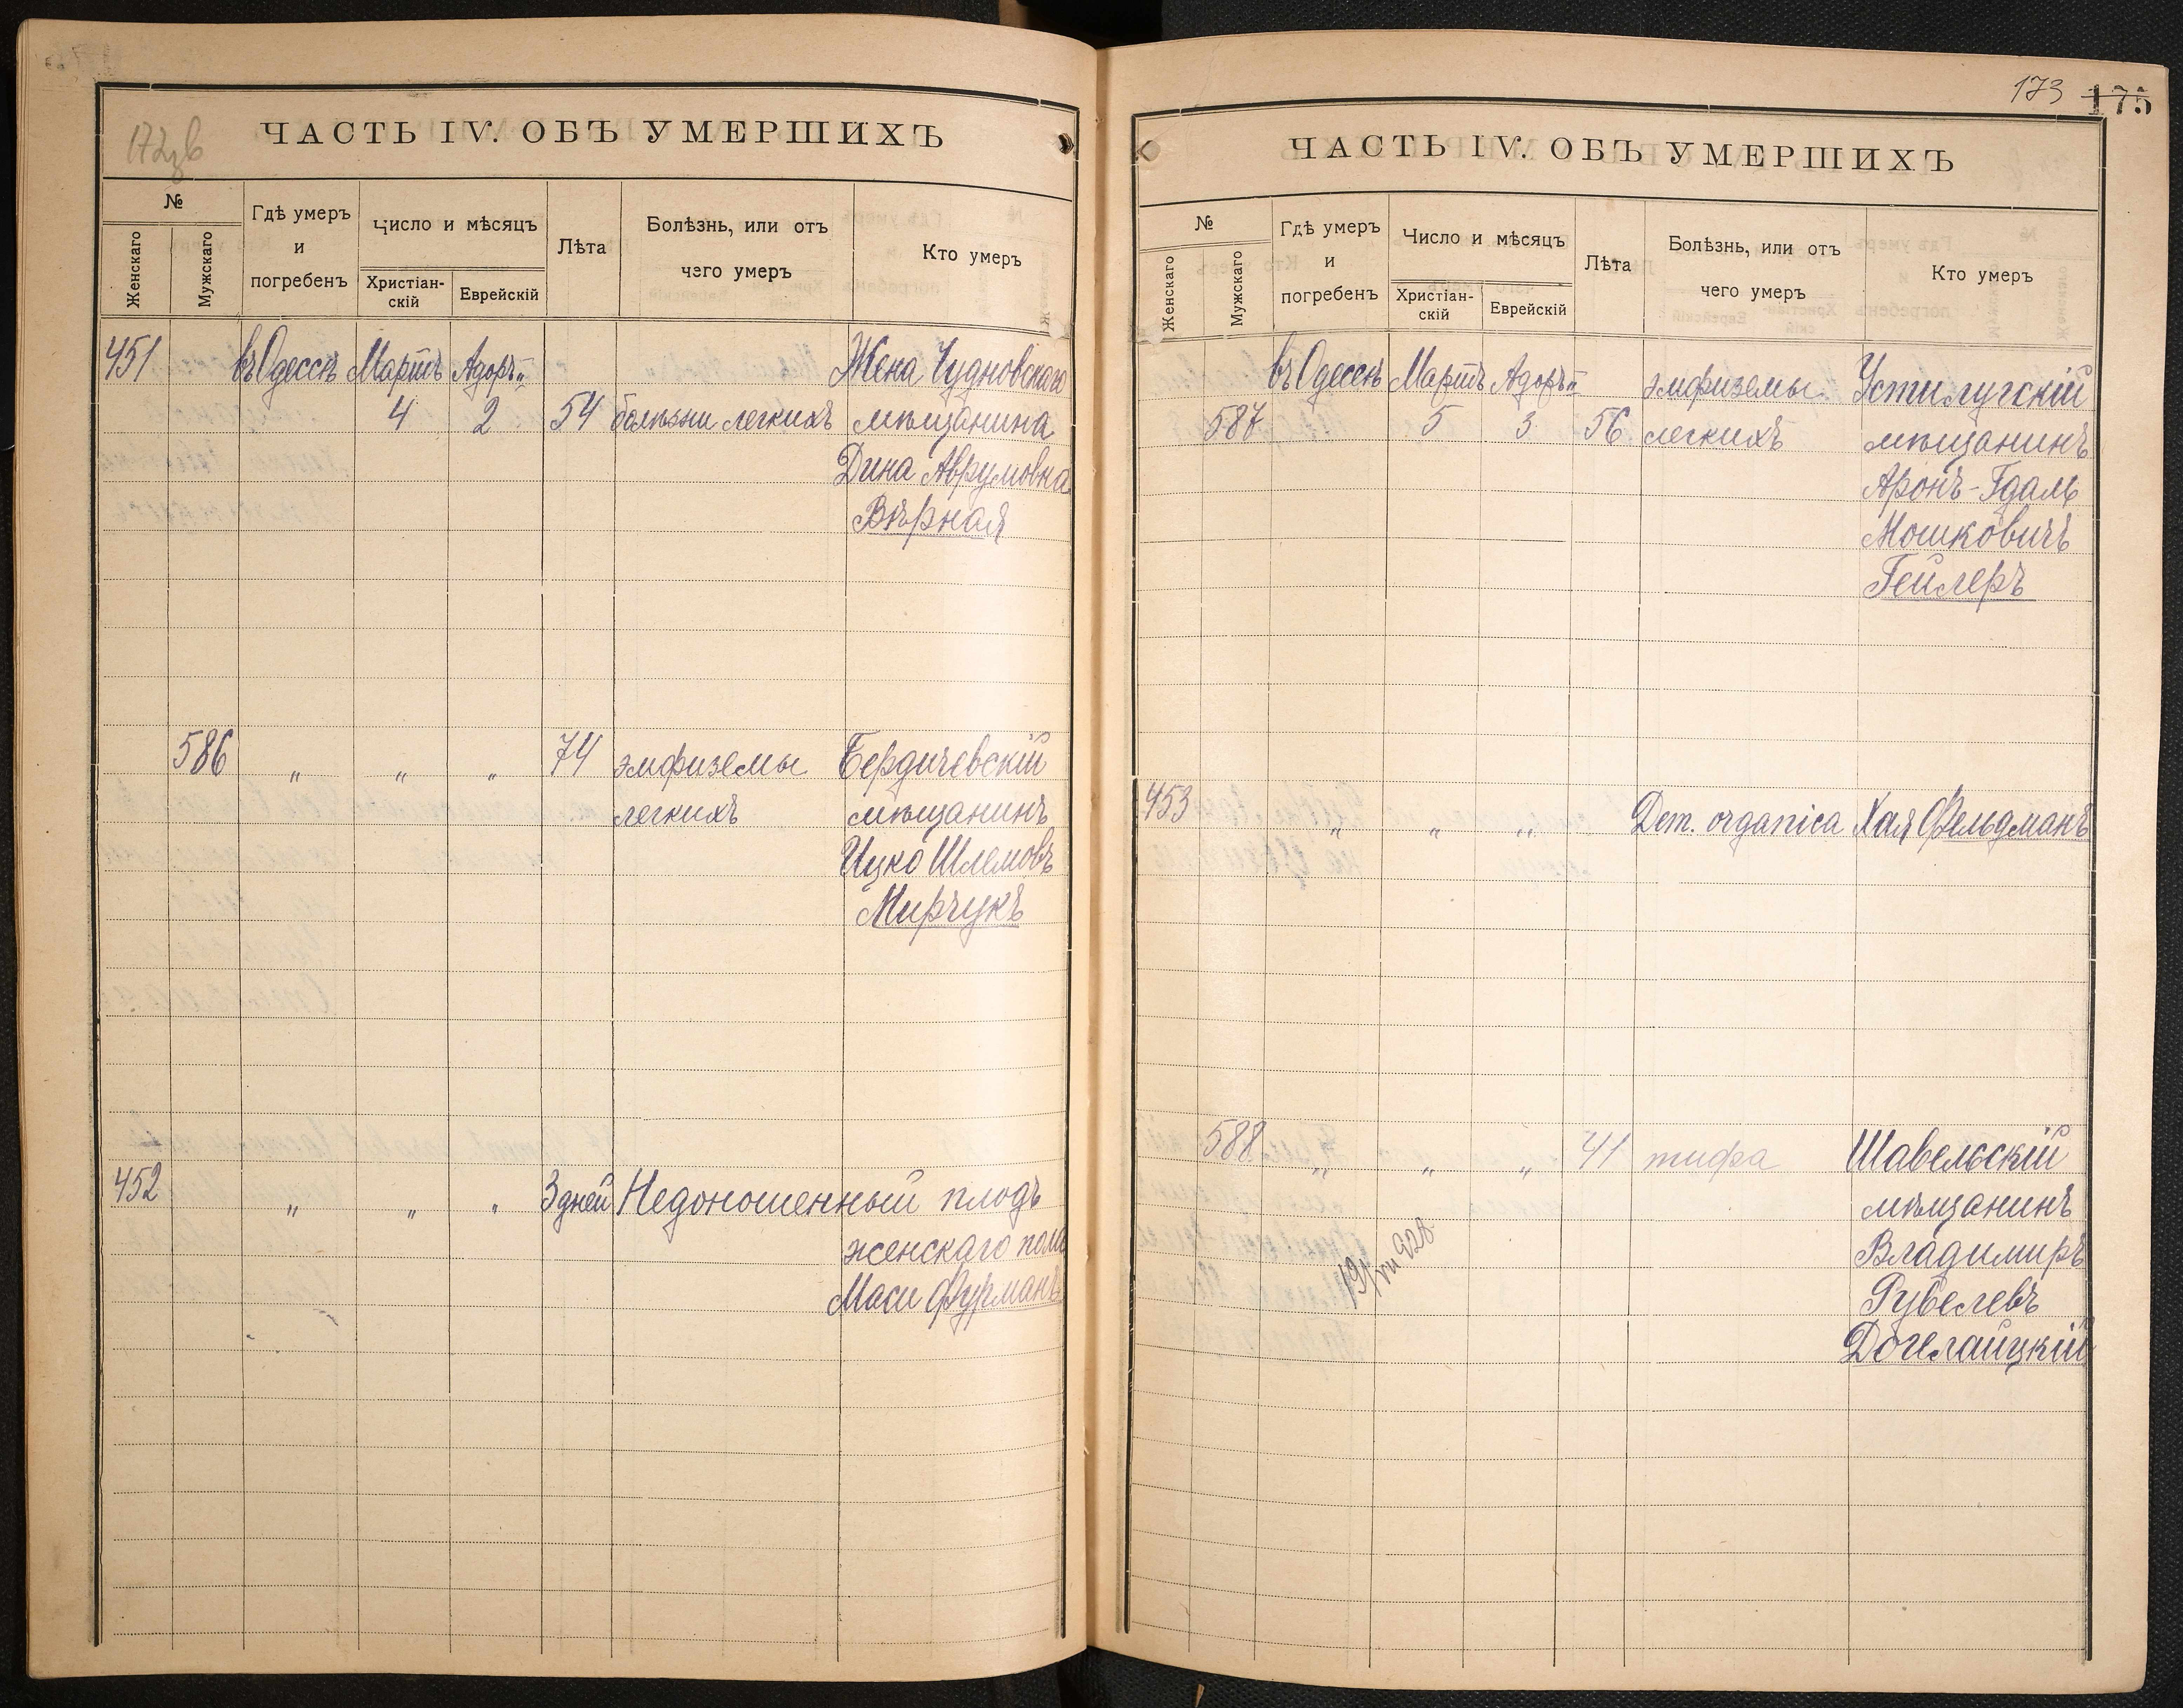 172 зв
ЧАСТЬ IV. ОБЪ УМЕРШИХЪ
№
Женскаго
Мужскаго
Гдѣ умеръ
и
погребенъ
Число и мѣсяцъ
Христіан-
скій
Еврейскій
Лѣта
Болѣзнь, или отъ
чего умеръ
Кто умеръ
451 въ Одессѣ Мартъ Адоръ II Жена Чудновскаго
4 2 54 болѣзни легкихъ мѣщанина
Дина Аврумовна
Вѣрная
586 " " " 74 эмфиземы Бердичевскій
легкихъ мѣщанинъ
Ицко Шлемовъ
Мирчукъ
452 " " " 3 дней Недоношенный плодъ
женскаго пола
Маси Фурманъ
173 175
ЧАСТЬ IV. ОБЪ УМЕРШИХЪ
№
Женскаго
Мужскаго
Гдѣ умеръ
и
погребенъ
Число и мѣсяцъ
Христіан-
скій
Еврейскій
Лѣта
Болѣзнь, или отъ
чего умеръ
Кто умеръ
въ Одессѣ Мартъ Адоръ II эмфиземы Устилугскій
587 5 3 56 легкихъ мѣщанинъ
Аронъ-Гдаль
Мошковичъ
Гейлеръ
453 " " " Dem. organica Хая Фельдманъ
588 " " " 41 тифа Шавельскій
мѣщанинъ
Владимиръ
19/VII 928
Рубелевъ
Догелайцкій